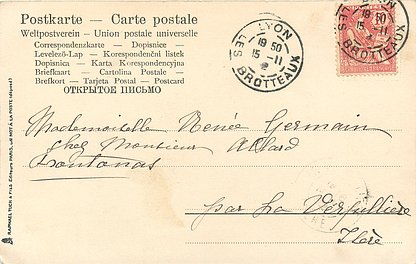 Postkarte — Carte postale
Weltpostverein — Union postale universelle
Correspondenzkarte — Dopisnice —
Levelező-Lap — Korespondenční listek
Dopisnica — Karta Korespondencyjna
Briefkaart — Cartolina Postale —
Brefkort — Tarjeta Postal — Postcard
ОТКРЫТОЕ ПИСЬМО
LYON
19 50
15 - 11
LES BROTTEAUX
LYON
19 50
15 - 11
LES BROTTEAUX
Mademoiselle Renée Germain
chez Monsieur Allard
Trontonas
par La Verpillière
Isère
RAPHAEL TUCK & FILS Editeurs PARIS.